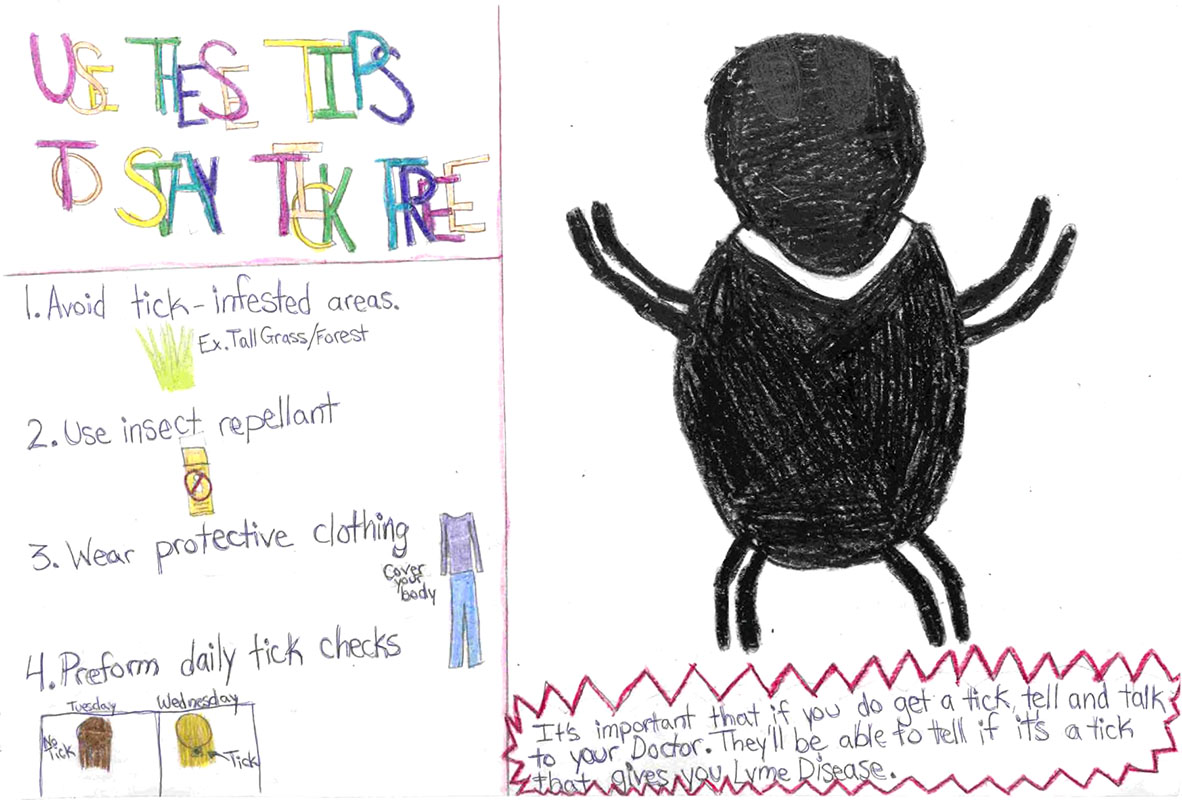 USE THESE TIPS
TO STAY TICK FREE
1. Avoid tick-infested areas.
Ex. Tall Grass/Forest
2. Use insect repellant
3. Wear protective clothing
Cover
your
body
4. Preform daily tick checks
Tuesday Wednesday
No
Tick
Tick
It's important that if you do get a tick, tell and talk
to your Doctor. They'll be able to tell if it's a tick
that gives you Lyme Disease.